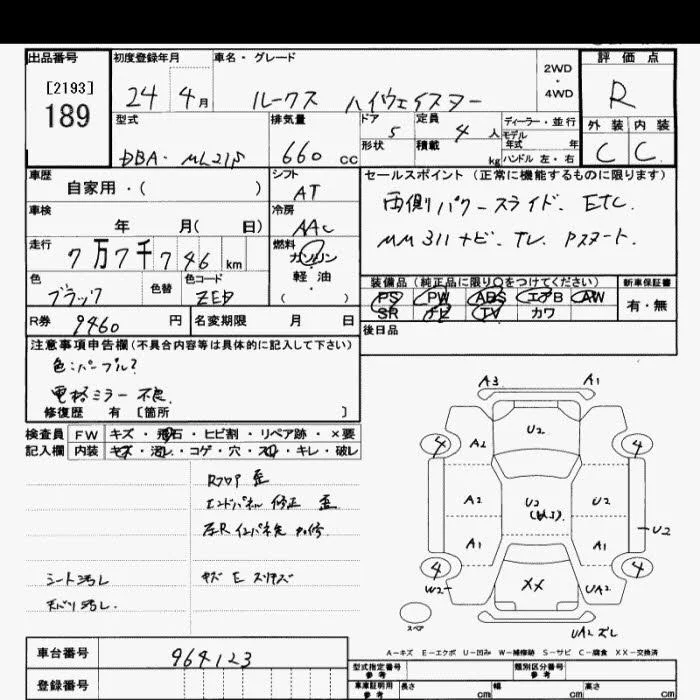 出品番号
[2193]
189
初度登録年月
24 4月
車名・グレード
ルークス ハイウェイスター
2WD
・
4WD
評価点
R
外装 内装
C C
型式
DBA- ML21S
排気量
660 cc
ドア 5
形状
定員 4 人
積載 kg
ディーラー・並行
モデル
年式 年
ハンドル 左・右
車歴
自家用・( )
シフト
AT
セールスポイント (正常に機能するものに限ります)
両側パワースライド、ETC、
MM311ナビ、TV、Pスタート、
車検
年 月( 日)
冷房
AAC
走行
7万7千746 km
燃料
ガソリン
軽・油
( )
色
ブラック
色替
色コード
ZED
装備品 (純正品に限り○をつけてください)
PS PW ABS エアB AW
SR ナビ TV カワ
新車保証書
有・無
R券 9460 円
名変期限 月 日
後日品
注意事項申告欄(不具合内容等は具体的に記入して下さい)
色:パープル?
電格ミラー不良
修復歴 有 [箇所 ]
検査員
記入欄
FW キズ・飛石・ヒビ割・リペア跡・×要
内装 キズ・汚れ・コゲ・穴・スレ・キレ・破レ
Rフロア 歪
エンドパネル 修正 歪
左R インパネ先
シート汚レ
キズ E スリキズ
天バリ汚レ.
A3 A1
U2
4 4
A2
A2 U2 U2
U2
A1 A1
4 4
W2 XX UA2
スペア
UA2 ズレ
A-キズ E-エクボ U-凹み W-補修跡 S-サビ C-腐食 XX-交換済
車台番号
964123
登録番号
型式指定番号
参考
類別区分番号
参考
車庫証明用
参考
長さ cm
幅 cm
高さ cm